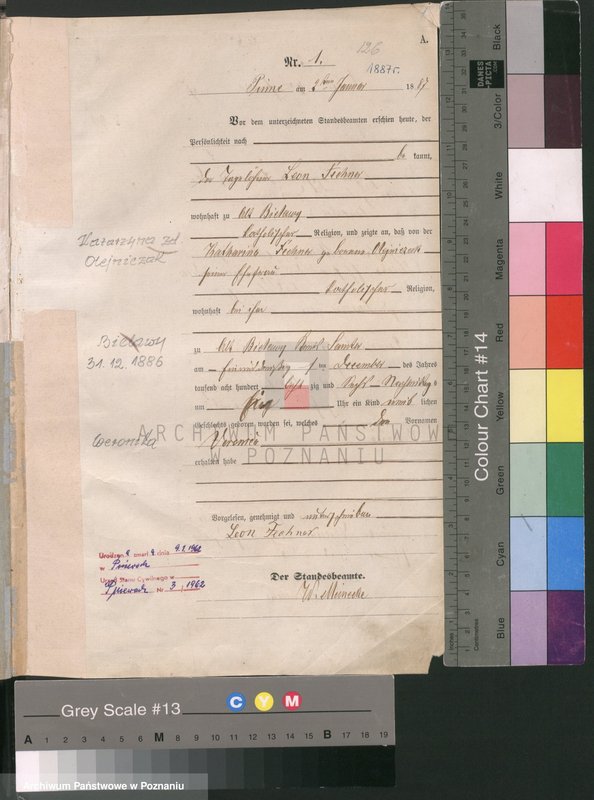 A.
126
Nr. 1.
1887r.
Pinne am 2ten Januar 1887
Vor dem unterzeichneten Standesbeamten erschien heute, der
Persönlichkeit nach
be kannt,
der Tagelöhner Leon Fechner
wohnhaft zu Alt Bielawy
katholischer Religion, und zeigte an, daß von der
Katharina Fechner geborene Olejniczak
seiner Ehefrau
katholischer Religion,
wohnhaft bei ihm
zu Alt Bielawy Samter
am einunddreißig ten December des Jahres
tausend acht hundert acht zig und sechs Nachmittags
um Uhr ein Kind weib lichen
Geschlechts geboren worden sei, welches den Vornamen
Veronica
erhalten habe
Vorgelesen, genehmigt und unterschrieben
Leon Fechner
Der Standesbeamte.
W. Meinecke
Katarzyna zd
Olejniczak
Bielawy
31.12.1886
Weronika
zmarł dnia 9.2.1962
w Pniewach
Urząd Stanu Cywilnego w
Pniewach Nr. 3 /1962
ARCHIWUM PAŃSTWOWE
W POZNANIU
DANES
-PICTA
.COM
Colour Chart #14
Black
3/Color
White
Magenta
Red
Yellow
Green
Cyan
Blue
Inches
Centimetres
Grey Scale #13
C Y M
A 1 2 3 4 5 6 M 8 9 10 11 12 13 14 15 B 17 18 19
Archiwum Państwowe w Poznaniu